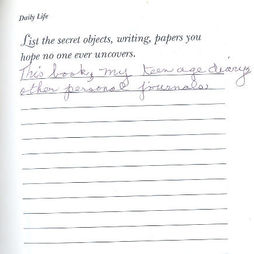 Daily Life
List the secret objects, writing, papers you
hope no one ever uncovers.
This book, my teen age diary,
other personal journals.